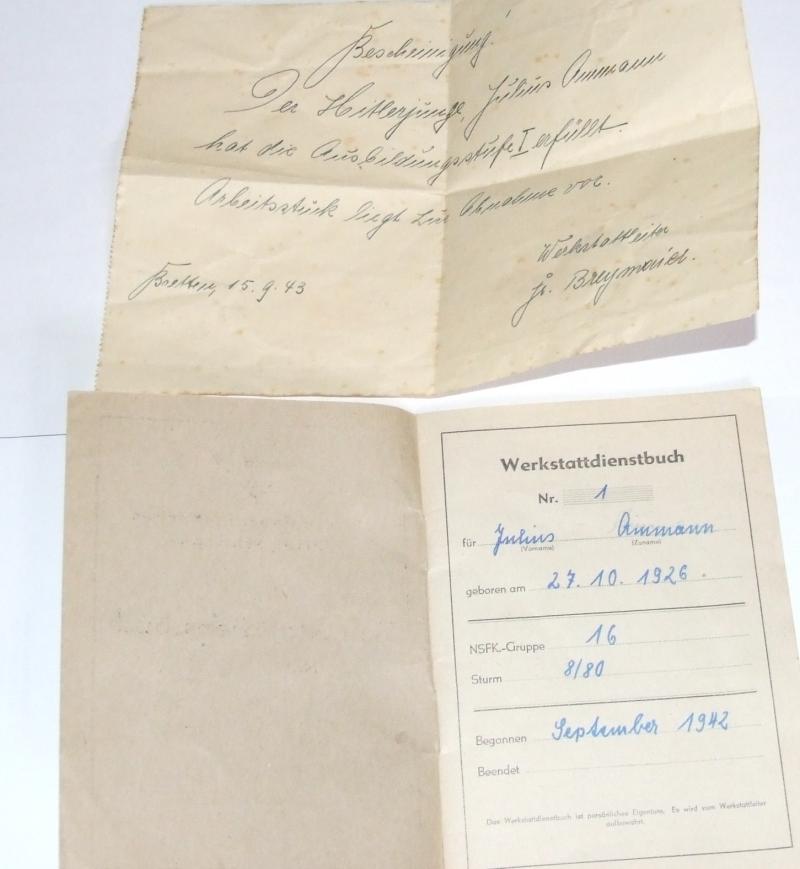 Bescheinigung!
Der Hitlerjunge, Julius Ammann
hat die Ausbildungsstufe I erfüllt.
Arbeitsstück liegt zur Abnahme vor.
Werkstattleiter
Bretten, 15.9.43
Fr. Breymaier.
Werkstattdienstbuch
Nr. 1
für Julius Ammann
(Vorname) (Zuname)
geboren am 27.10.1926.
NSFK.-Gruppe 16
Sturm 8/80
Begonnen September 1942
Beendet
Das Werkstattdienstbuch ist persönliches Eigentum. Es wird vom Werkstattleiter
aufbewahrt.